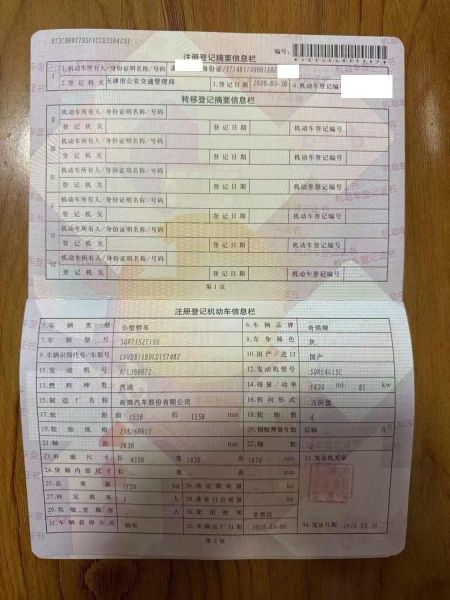 注册登记摘要信息栏
编号:
I 1.机动车所有人/身份证明名称/号码
2.登记机关 天津市公安交通管理局 3.登记日期 2020-09-30 4.机动车登记编号
转移登记摘要信息栏
II 机动车所有人/身份证明名称/号码
登记机关 登记日期 机动车登记编号
III 机动车所有人/身份证明名称/号码
登记机关 登记日期 机动车登记编号
IV 机动车所有人/身份证明名称/号码
登记机关 登记日期 机动车登记编号
V 机动车所有人/身份证明名称/号码
登记机关 登记日期 机动车登记编号
VI 机动车所有人/身份证明名称/号码
登记机关 登记日期 机动车登记编号
VII 机动车所有人/身份证明名称/号码
登记机关 登记日期 机动车登记编号
第1页
注册登记机动车信息栏
5.车辆类型 小型轿车 6.车辆品牌 奇瑞牌
7.车辆型号 8.车身颜色 灰
9.车辆识别代号/车架号 10.国产/进口 国产
11.发动机号 12.发动机型号 SQRE4G15C
13.燃料种类 汽油 14.排量/功率 1499 ml/ 85 kw
15.制造厂名称 奇瑞汽车股份有限公司 16.转向形式 方向盘
17.轮距 前 1550 后 1550 mm 18.轮胎数 4
19.轮胎规格 20.钢板弹簧片数 后轴 片
21.轴距 2630 mm 22.轴数 2
23.外廓尺寸 长 4358 宽 1830 高 1670 mm 33.发证机关章
24.货厢内部尺寸 长 宽 高 mm
25.总质量 kg 26.核定载质量 kg
27.核定载客 人 28.准牵引总质量 kg
29.驾驶室载客 人 30.使用性质 非营运
31.车辆获得方式 购买 32.车辆出厂日期 34.发证日期
第2页